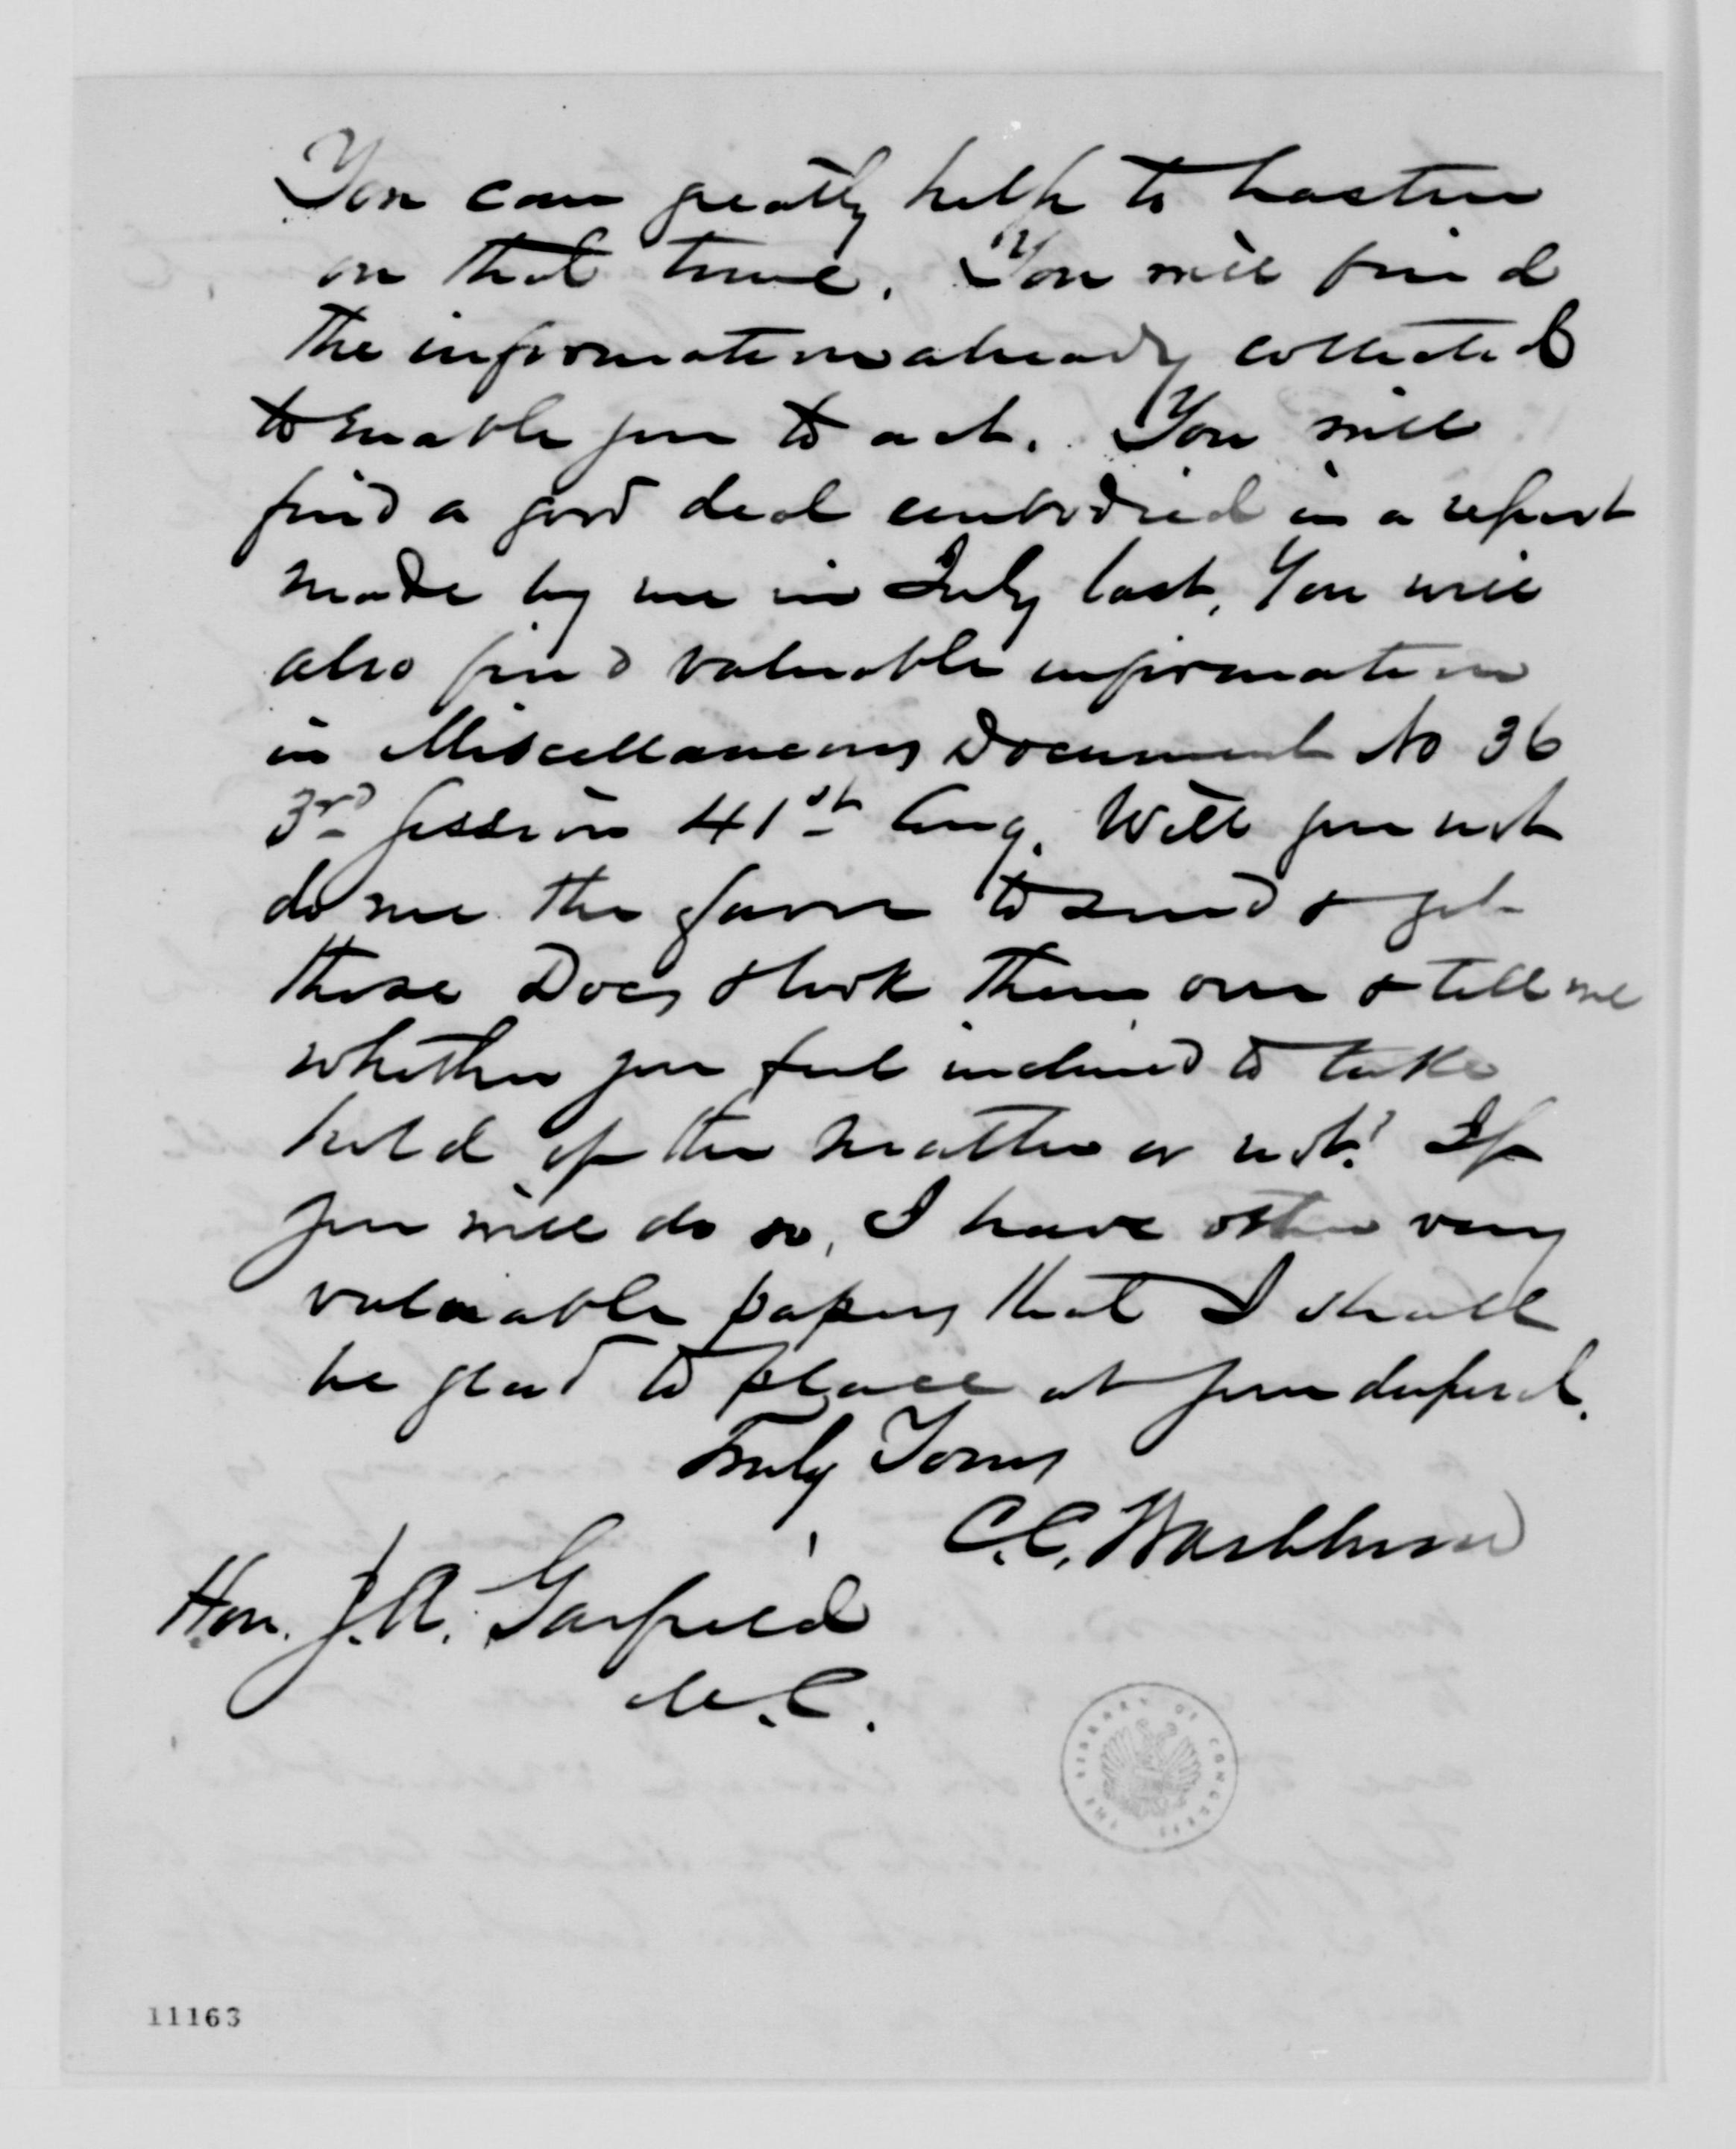 You can greatly help to hasten
on that time. You will find
the information already collected
to enable you to act. You will
find a good deal embodied in a report
made by me in July last, You will
also find valuable information
in Miscellaneous Document No 36
3rd Session 41st Cong. Will you not
do me the favor to send & get
those Docs & look them over & tell me
whether you feel inclined to take
hold of the matter or not? If
you will do so, I have other very
valuable papers that I shall
be glad to place at your disposal.
Truly Yours
C.C. Washburn
Hon. J.A. Garfield
M.C.
THE LIBRARY OF CONGRESS
11163